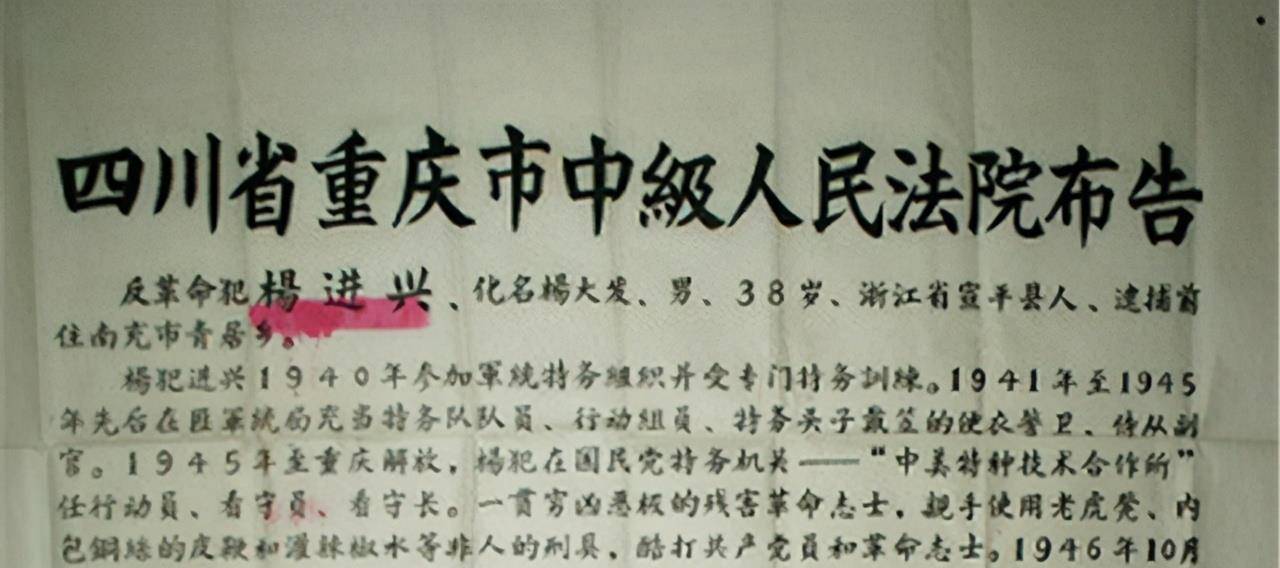 四川省重庆市中級人民法院布告
反革命犯楊进兴、化名楊大发、男、38岁、浙江省宣平县人、逮捕前
住南充市青居乡。
楊犯进兴1940年参加軍統特务組織并受专门特务訓練。1941年至1945
年先后在匪軍統局充当特务队队员、行动組員、特务头子戴笠的便衣警卫、侍从副
官。1945年至重庆解放，楊犯在国民党特务机关——“中美特种技术合作所”
任行动員、看守员、看守长。一貫穷凶恶极的残害革命志士，親手使用老虎凳、内
包鋼絲的皮鞭和灌辣椒水等非人的刑具，酷打共产党员和革命志士。1946年10月